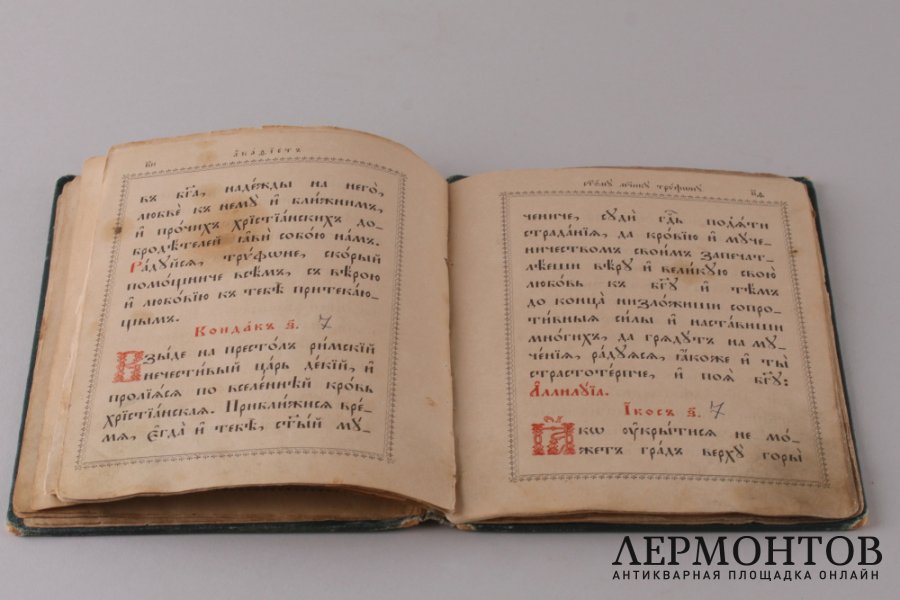 а҆ка́ѳїстъ
въ бг҃а, наде́жды на него̀,
любвѐ къ нему̀ и҆ бли́жнимъ,
и҆ про́чихъ хрїстїа́нскихъ до-
бродѣ́телей ꙗ҆вѝ собо́ю на́мъ.
Ра́дуйсѧ, трѵ́фѡне, ско́рый
помо́щниче всѣ́мъ, съ вѣ́рою
и҆ любо́вїю къ тебѣ̀ притека́ю-
щымъ.
Конда́къ з҃. 7
Взы́де на престо́лъ ри́мскїй
нечести́вый ца́рь де́кїй, и҆
пролїѧ́сѧ по вселе́ннѣй кро́вь
хрїстїа́нская. Прибли́жисѧ вре́-
мѧ, є҆гда̀ и҆ тебѣ̀, ст҃ы́й му́-
ст҃о́му мч҃нку трѵ́фѡну
чениче, судѝ гд҇ь подѧ́ти
страда̑нїѧ, да кро́вїю и҆ му́че-
ничествомъ свои́мъ запечат-
лѣ́еши вѣ́ру и҆ вели́кую свою̀
любо́вь къ бг҃у и҆ тѣ́мъ
до конца̀ низложи́ши сопро-
ти̑вныѧ си̑лы и҆ наста́виши
мно́гихъ, да грѧду́тъ на му-
че́нїѧ, ра́дуѧсѧ, ꙗ҆́коже и҆ ты̀
страстоте́рпче, и҆ поѧ̀ бг҃у:
А҆ллилу́їа.
І҆́косъ з҃. 7
Ꙗ҆́кѡ ᲂу҆кры́тисѧ не мо́-
жетъ гра́дъ верху̀ горы̀
ЛЕРМОНТОВ
АНТИКВАРНАЯ ПЛОЩАДКА ОНЛАЙН